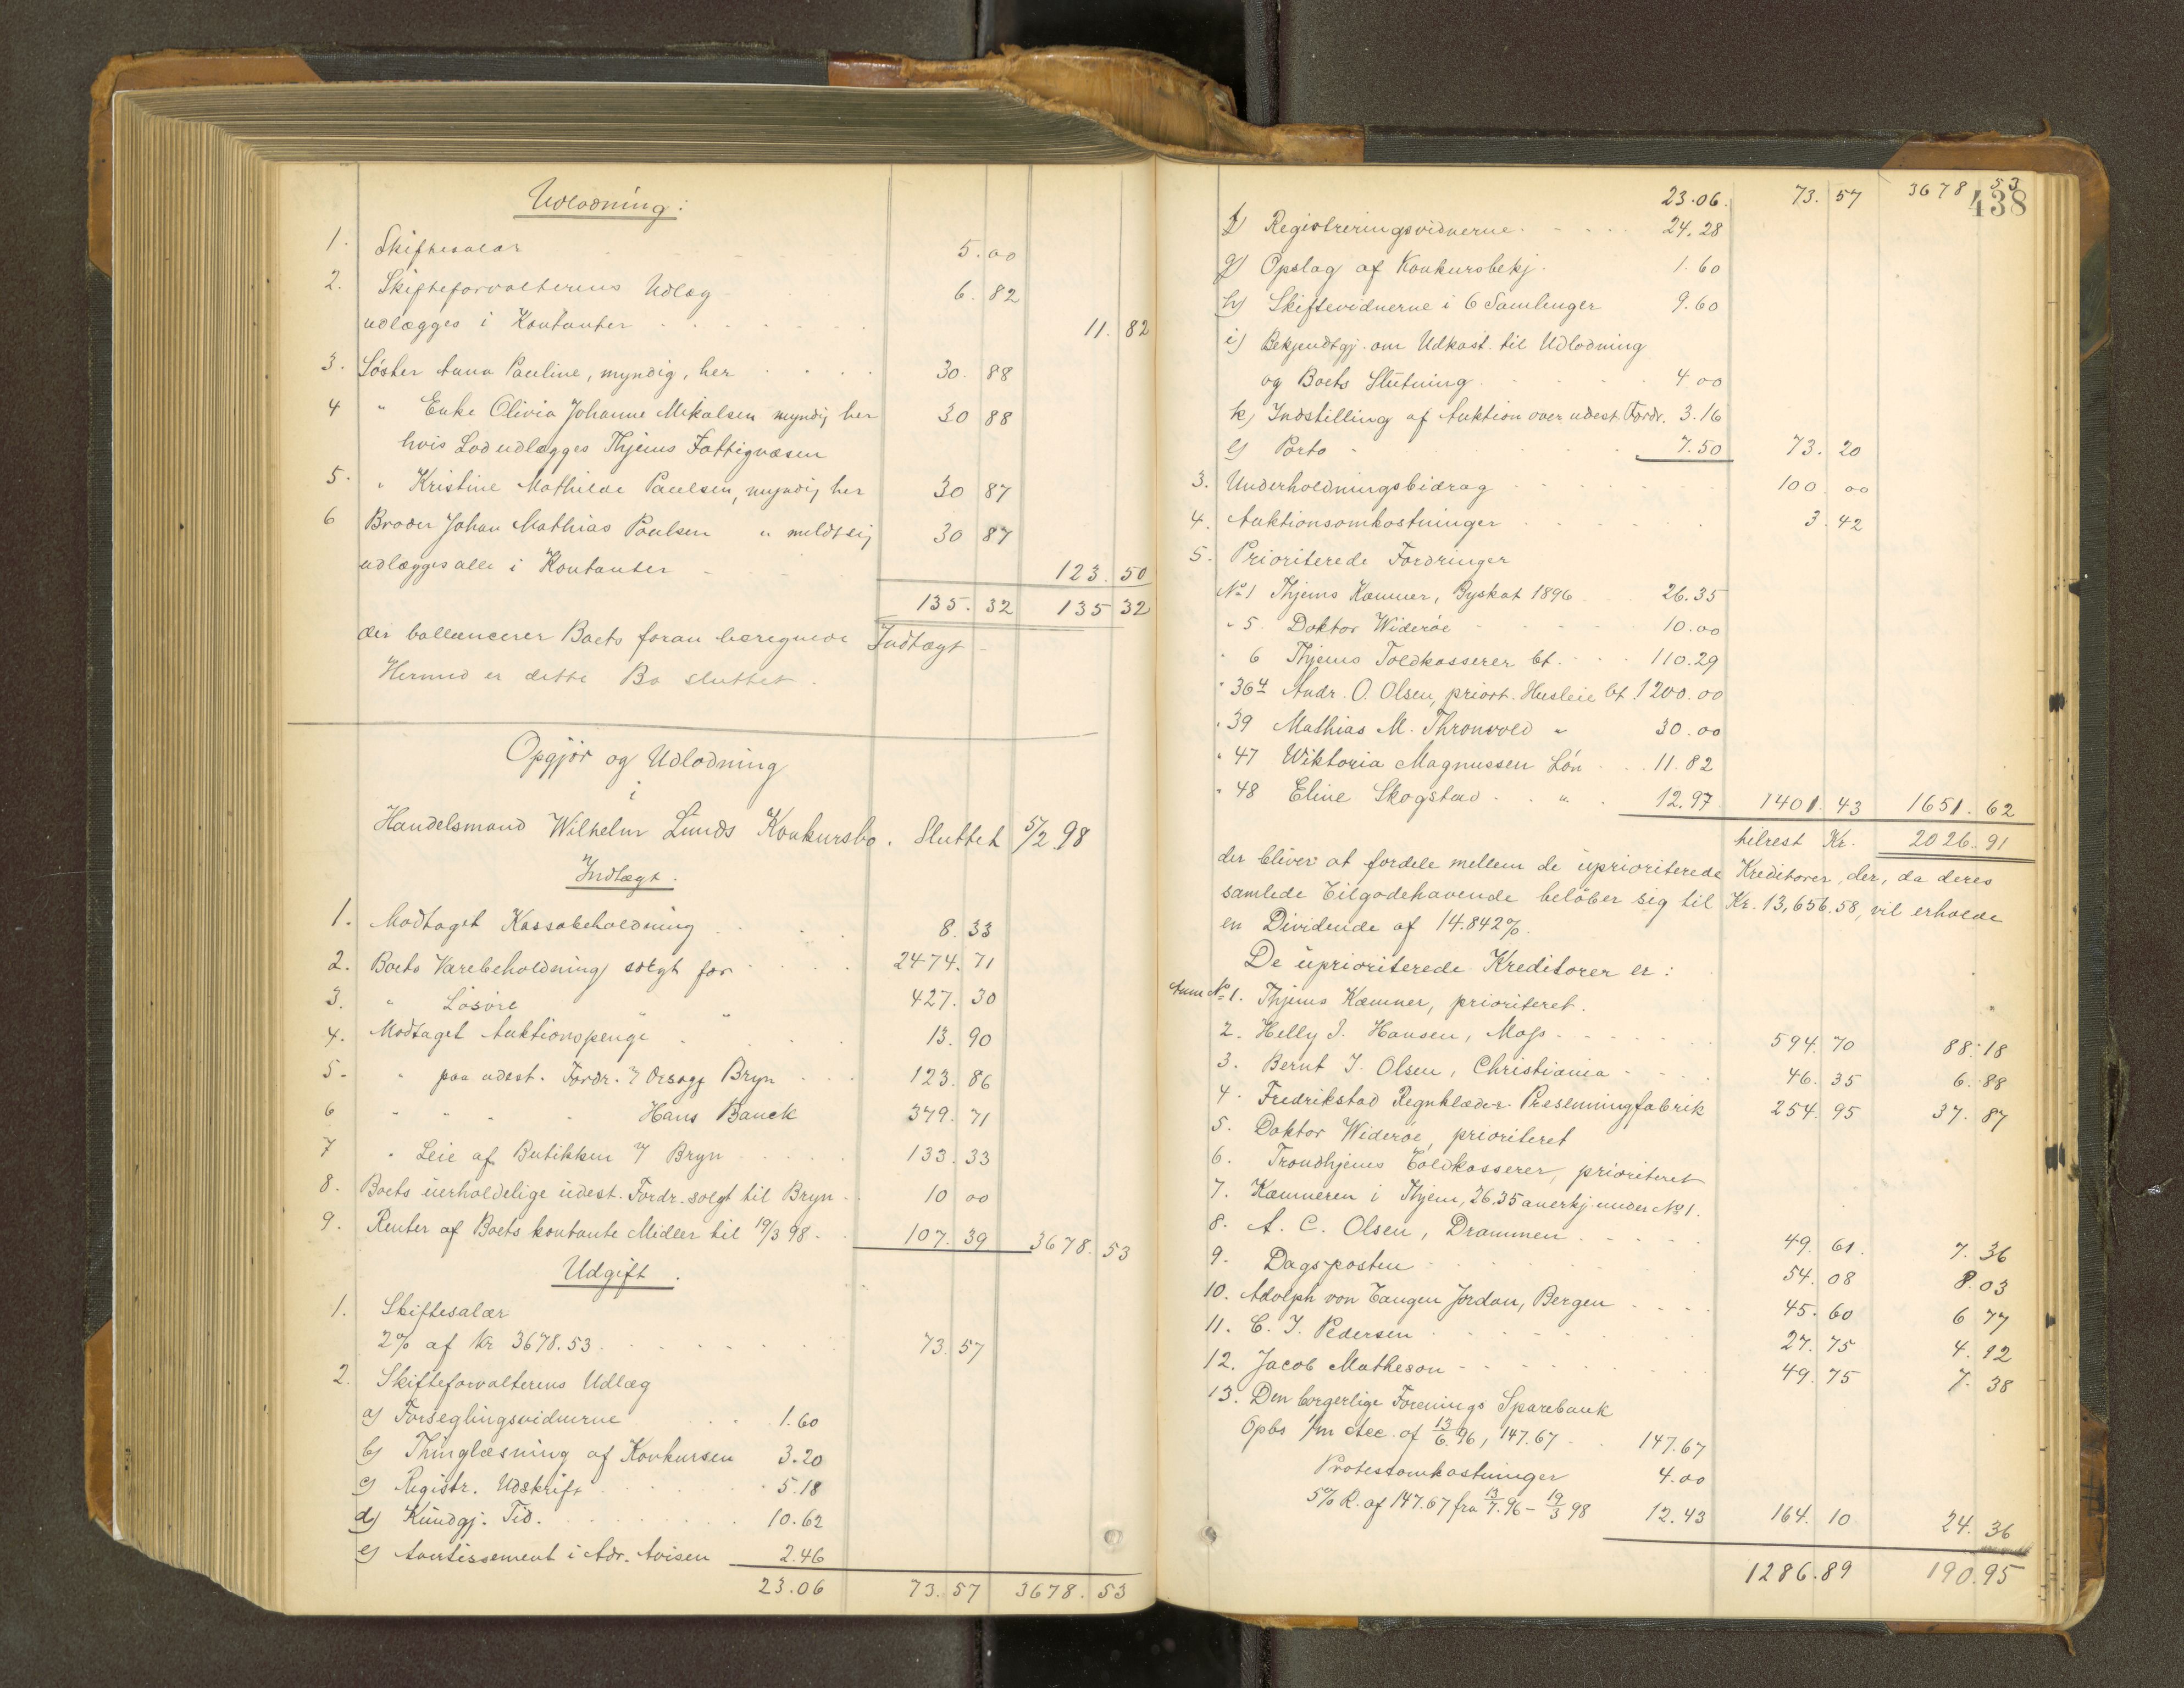 Udlodning:
1. Skiftesalær 5.00
2. Skifteforvalterens Udlæg 6.82
udlægges i Kontanter 11.82
3. Söster Anna Pauline, myndig, her 30.88
4 " Enke Olivia Johanne Mikalsen myndig her 30 88
hvis Lod udlægges Thjems Fattigvæsen
5. " Kristine Mathilde Paulsen, myndig her 30 87
6 Broder Johan Mathias Paulsen " meldt sig 30 87
udlægges alle i Kontanter 123.50
135.32 135 32
der ballancerer Boets foran beregnede Indtægt
Hermed er dette Bo sluttet.
Opgjör og Udlodning
i
Handelsmand Wilhelm Lunds Konkursbo. Sluttet 5/2 98
Indtægt.
1. Modtaget Kassabeholdning 8.33
2. Boets Varebeholdning solgt for 2474.71
3. " Lösöre " " 427.30
4. Modtaget Auktionspenge 13.90
5. " paa udest. Fordr. Bryn 123.86
6 " " " " Hans Bauck 379.71
7 " Leie af Butikken Bryn 133.33
8. Boets uerholdelige udest. Fordr. solgt til Bryn 10 00
9. Renter af Boets kontante Midler til 19/3 98 107.39 3678.53
Udgift.
1. Skiftesalær
2% af Kr 3678.53 73.57
2. Skifteforvalterens Udlæg
a) Forseglingsvidnerne 1.60
b) Thinglæsning af Konkursen 3.20
c) Registr. Udskrift 5.18
d) Kundgj. Tid. 10.62
e) Avertissement i Adr. Avisen 2.46
23.06 73.57 3678.53
438
23.06. 73.57 3678 53
f) Registreringsvidnerne 24.28
g) Opslag af Konkursbekj. 1.60
h) Skiftevidnerne i 6 Samlinger 9.60
i) Bekjendtgj. om Udkast til Udlodning
og Boets Slutning 4.00
k) Indstilling af Auktion over udest. Fordr. 3.16
l) Porto 7.50 73.20
3. Underholdningsbidrag 100 00
4. Auktionsomkostninger 3.42
5. Prioriterede Fordringer
No 1 Thjems Kæmner, Byskat 1896 26.35
" 5. Doktor Wideröe 10.00
" 6 Thjems Toldkasserer bf. 110.29
" 36 Andr. O. Olsen, priort. Husleie bf. 1200.00
" 39 Mathias M. Thronvold " 30.00
" 47 Wiktoria Magnussen Lön 11.82
" 48 Eline Skogstad " 12.97 1401.43 1651.62
tilrest Kr. 2026.91
der bliver at fordele mellem de uprioriterede Kreditorer, der, da deres
samlede Tilgodehavende belöber sig til Kr. 13,656.58, vil erholde
en Dividende af 14.842%.
De uprioriterede Kreditorer er:
Anm No 1. Thjems Kæmner, prioriteret.
2. Helly J. Hansen, Moss 594.70 88.18
3. Bernt J. Olsen, Christiania 46.35 6.88
4. Fredrikstad Regnklæder Presenningfabrik 254.95 37.87
5. Doktor Wideröe, prioriteret
6. Trondhjems Toldkasserer, prioriteret
7. Kæmneren i Thjem, 26.35 anerkj. under No 1.
8. A. C. Olsen, Drammen 49.61. 7.36
9. Dagsposten 54.08 8.03
10. Adolph von Tangen Jordan, Bergen 45.60 6 77
11. C. J. Pedersen 27.75 4.12
12. Jacob Matheson 49.75 7.38
13. Den borgerlige Forenings Sparebank
Opbs Acc. af 13/6 96, 147.67 147.67
Protestomkostninger 4.00
5% R. af 147.67 fra 13/7.96 - 19/3 98 12.43 164.10 24.36
1286.89 190.95